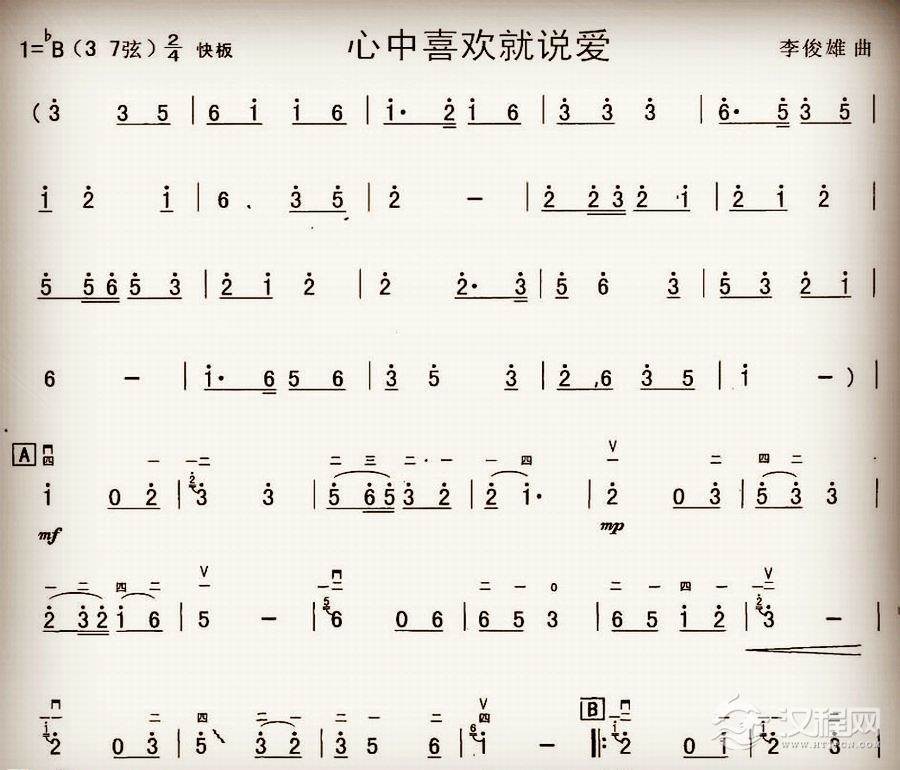 1=♭B（3 7弦）2/4 快板 心中喜欢就说爱 李俊雄 曲
( 3 3 5 | 6 i i 6 | i· 2 i 6 | 3 3 3 | 6· 5 3 5 |
i 2 i | 6. 3 5 | 2 － | 2 2 3 2 i | 2 i 2 |
5 5 6 5 3 | 2 i 2 | 2 2· 3 | 5 6 3 | 5 3 2 i |
6 － | i· 6 5 6 | 3 5 3 | 2. 6 3 5 | i － ) |
A 四 一 一 二 二 三 二 · 一 一 四 V 一 二 四 二
i 0 2 | 2 3 3 | 5 6 5 3 2 | 2 i· | 2 0 3 | 5 3 3 |
mf mp
一 二 四 二 V 一 二 二 一 0 二 一 四 一 V 一 二
2 3 2 i 6 | 5 － | 5 6 0 6 | 6 5 3 | 6 5 i 2 | 2 3 － |
一 二 四 二 一 二 V 四 B 一 二 一
i 2 0 3 | 5 3 2 | 3 2 | 6 i － |: i 2 0 i | i 2 3
汉程网